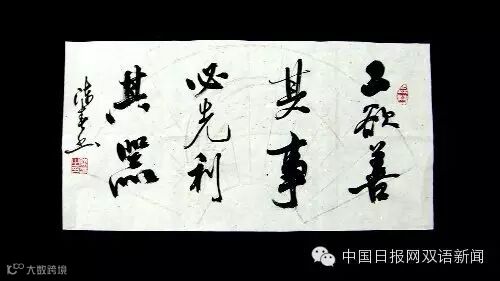 工欲善
其事
必先利
其器
中国日报网双语新闻
大数跨境